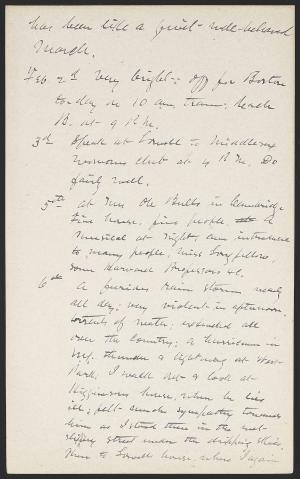 has been like a quiet well-behaved
March.
Feb 2nd Very bright; off for Boston
to-day on 10 am train; reach
B. at 9 P.M.
3rd Speak at Lowell to Middlesex
Womans club at 4 P.M. Do
fairly well.
5th at Mrs Ole Bulls in Cambridge
Fine house; fine people. A
musical at night; am introduced
to many people, Miss Longfellow,
some Harvard Professors &c.
6th A furious rain storm nearly
all day; very violent in afternoon,
torrents of water; extended all
over the country; a hurricane in
N.Y. thunder & lightning at West
Park. I walk out & look at
Higginsons house, when he lies
ill; felt much sympathy towards
him as I stood there in the wet
slippery street under the dripping skies.
Then to Lowell house, where I again